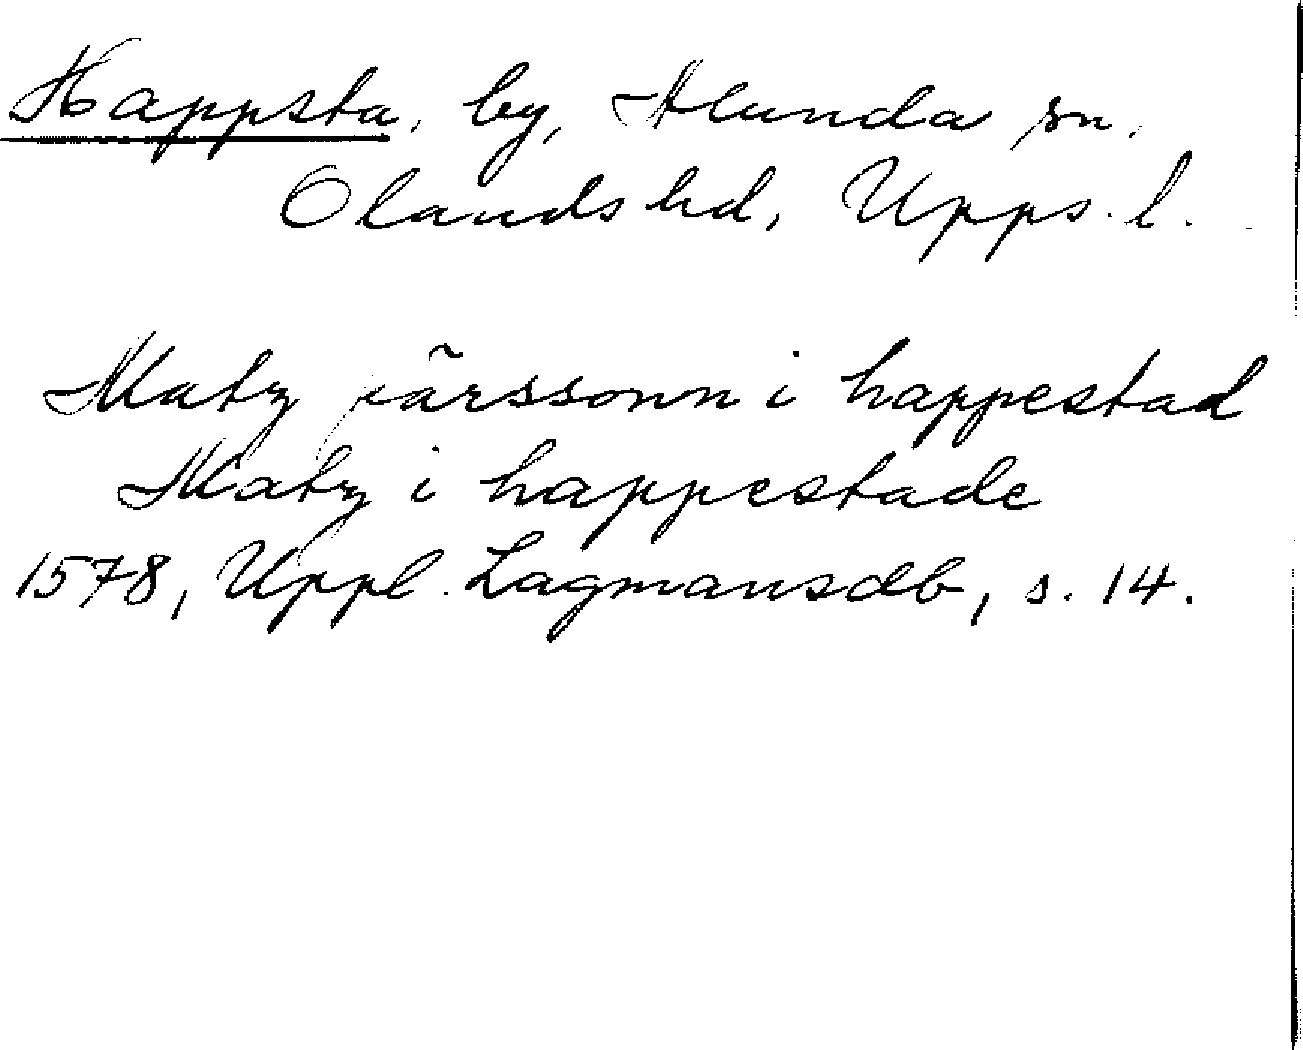 Happsta, by, Alunda sn.
Olands hd, Upps. l.
Matz pãrssonn i happestad
Matz i happestade
1578, Uppl. Lagmansdb, s. 14.